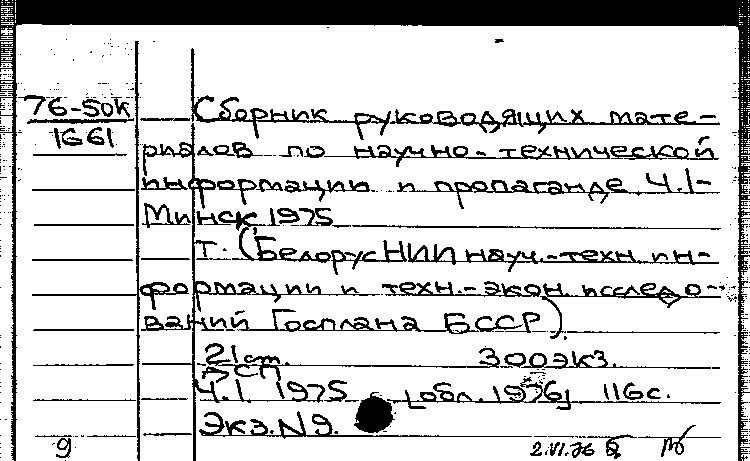 76-50к
1661
Сборник руководящих мате-
риалов по научно-технической
информации и пропаганде. Ч.1-
Минск 1975
Т. (БелорусНИИ науч.-техн. ин-
формации и техн.-экон. исследо-
ваний Госплана БССР).
21 см. 300 экз.
ДСП
Ч.1. 1975 [обл. 1976] 116 с.
Экз. N9.
9 2.VI.76